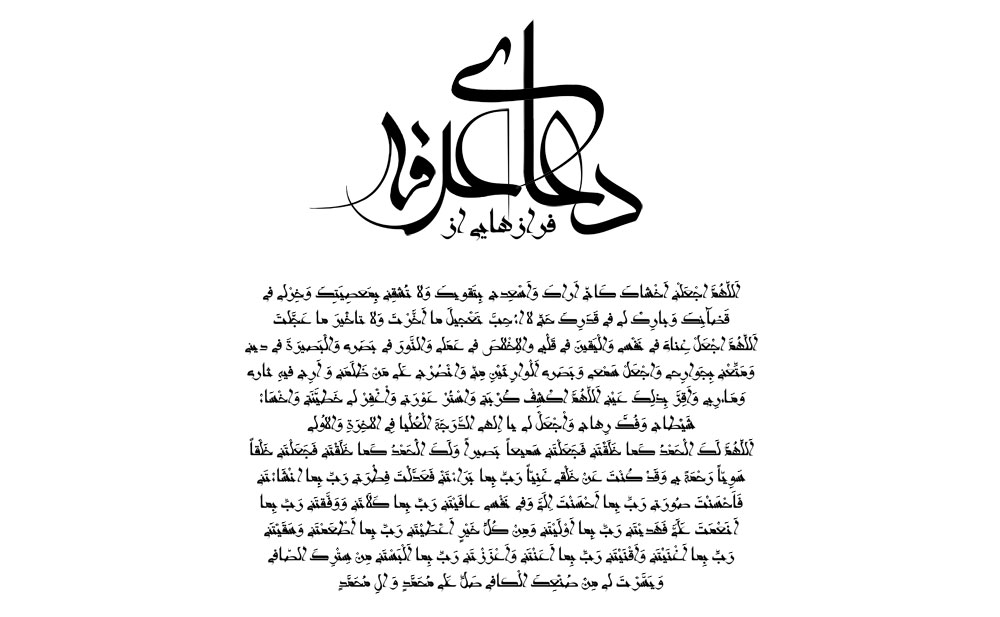 دعای عرفه
فرازهایی از
أَللّٰهُمَّ اجْعَلْنِي أَخْشاكَ كَانِّي أَراكَ وَأَسْعِدنِي بِتَقويكَ وَلا تُشْقِنِي بِمَعصِيَتِكَ وَخِرْلِي فِي
قَضآئِكَ وَبارِكْ لِي فِي قَدَرِكَ حَتّي لا اُحِبَّ تَعْجيلَ ما أَخَّرْتَ وَلا تَاخْيرَ ما عَجَّلْتَ
أَللّٰهُمَّ اجْعَلْ غِنايَ فِي نَفْسي وَالْيَقينَ فِي قَلْبي وَالاِخْلاصَ فِي عَمَلي وَالنُّورَ فِي بَصَري وَالْبَصيرَةَ فِي ديني
وَمَتِّعْنِي بِجَوارِحي وَاجْعَلْ سَمْعي وَبَصَري أَلْوارِثَيْنِ مِنّي وَانْصُرْنِي عَلي مَنْ ظَلَمَني وَ أَرِنِي فيهِ ثاري
وَمَاربي وَأَقِرَّ بِذلِكَ عَيْني أَللّٰهُمَّ اكْشِفْ كُرْبَتي وَاسْتُرْ عَوْرَتي وَاغْفِرْ لي خَطيئَتي وَاخْسَاْ
شَيْطاني وَفُكَّ رِهاني وَاْجْعَلْ لي يا إِلهي الدَّرَجَةَ الْعُلْيا فِي الاخِرَةِ وَالاُولي
أَللّٰهُمَّ لَكَ الْحَمْدُ كَما خَلَقْتَني فَجَعَلْتَني سَميعاً بَصيراً وَلَكَ الْحَمْدُ كَما خَلَقْتَني فَجَعَلْتَني خَلْقاً
سَوِيّاً رَحْمَةً بي وَقَدْ كُنْتَ عَنْ خَلْقي غَنِيّاً رَبِّ بِما بَرَاْتَنْي فَعَدَّلْتَ فِطْرَتي رَبِّ بِما انْشَاْتَني
فَاَحْسَنْتَ صُورَتي رَبِّ بِما اَحْسَنْتَ اِلَيَّ وَفِي نَفْسي عافَيْتَني رَبِّ بِما كَلاَتَني وَوَفَّقتَني رَبِّ بِما
اَنْعَمْتَ عَلَيَّ فَهَدَيْتَني رَبِّ بِما اَوْلَيْتَني وَمِنْ كُلِّ خَيْرٍ اَعْطَيْتَني رَبِّ بِما أَطْعَمْتَني وَسَقَيْتَني
رَبِّ بِما أَغْنَيْتَني وَأَقْنَيْتَني رَبِّ بِما أَعَنْتَني وَأَعْزَزْتَني رَبِّ بِما أَلْبَسْتَني مِنْ سِتْرِكَ الصّافي
وَيَسَّرْتَ لي مِنْ صُنْعِكَ الْكافي صَلِّ عَلي مُحَمَّدٍ وَ الِ مُحَمَّدٍ